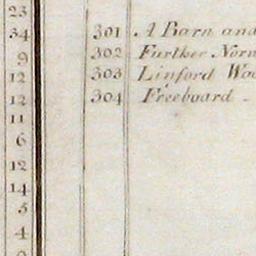 23
34 301 A Barn and
9 302 Further Norn
12 303 Linford Woo
12 304 Freeboard -
11
6
12
14
5
4